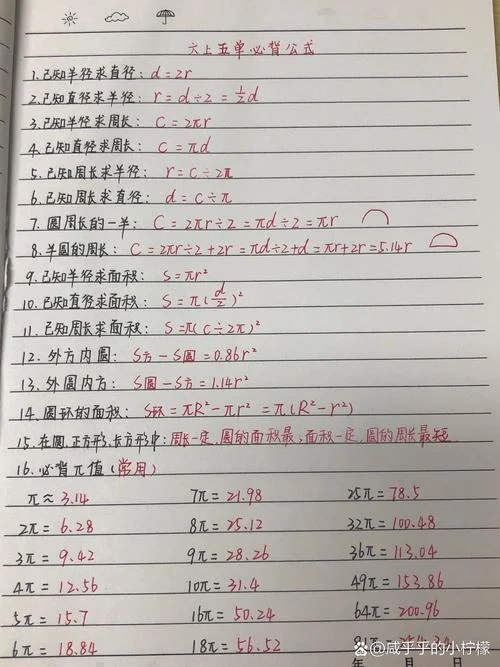 六上五单必背公式
1.已知半径求直径: d=2r
2.已知直径求半径: r=d÷2=½d
3.已知半径求周长: C=2πr
4.已知直径求周长: C=πd
5.已知周长求半径: r=C÷2π
6.已知周长求直径: d=C÷π
7.圆周长的一半: C=2πr÷2=πd÷2=πr
8.半圆的周长: C=2πr÷2+2r=πd÷2+d=πr+2r=5.14r
9.已知半径求面积: S=πr²
10.已知直径求面积: S=π(d/2)²
11.已知周长求面积: S=π(C÷2π)²
12.外方内圆: S方-S圆=0.86r²
13.外圆内方: S圆-S方=1.14r²
14.圆环的面积: S环=πR²-πr²=π(R²-r²)
15.在圆,正方形,长方形中:周长一定,圆的面积最;面积一定,圆的周长最短.
16.必背π值(常用)
π≈3.14 7π=21.98 25π=78.5
2π=6.28 8π=25.12 32π=100.48
3π=9.42 9π=28.26 36π=113.04
4π=12.56 10π=31.4 49π=153.86
5π=15.7 16π=50.24 64π=200.96
6π=18.84 18π=56.52
@咸乎乎的小柠檬
年 月 日